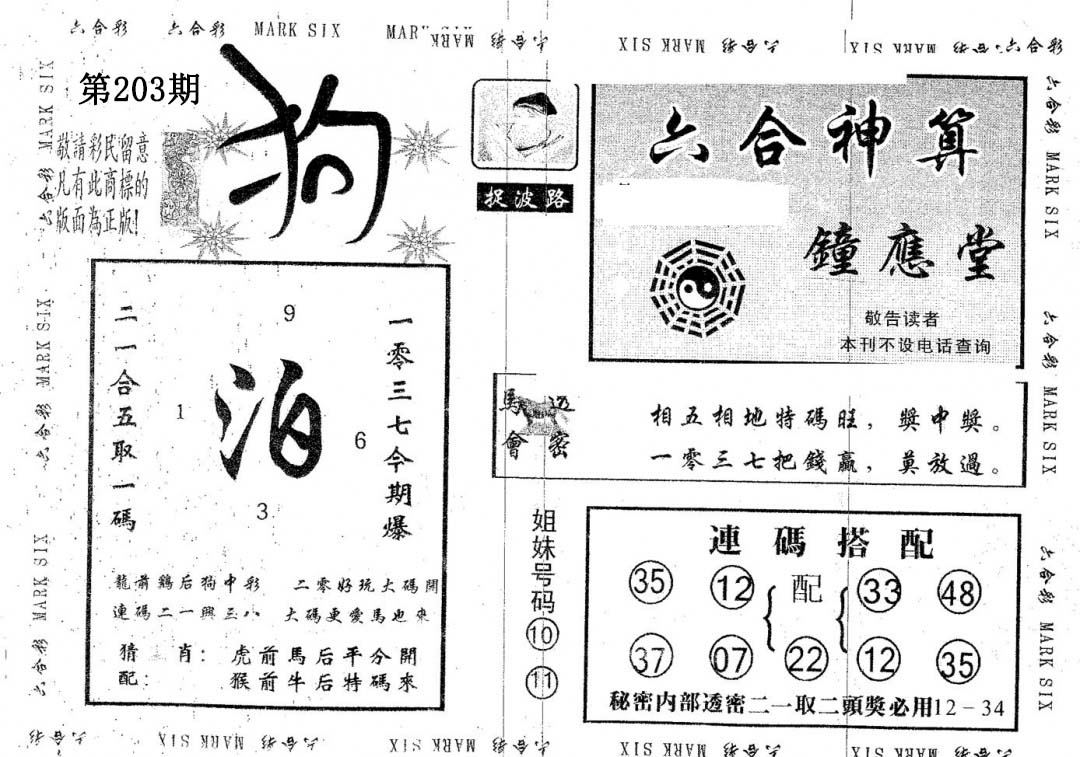 六合彩 六合彩 MARK SIX MARK SIX 六合彩 MARK SIX 六合彩 MARK SIX 六合彩 六合彩
第203期
狗
敬請彩民留意
凡有此商標的
版面為正版!
捉波路
六合神算
鐘應堂
敬告读者
本刊不设电话查询
二一合五取一碼
9
1
泊
6
3
一零三七今期爆
龍前鷄后狗中彩 二零好玩大碼開
連碼二一興三八 大碼更愛馬也來
猜肖: 虎前馬后平分開
配: 猴前牛后特碼來
馬會
透密
相五相地特碼旺,獎中獎。
一零三七把錢贏,莫放過。
姐妹号码
10
11
連碼搭配
35 12 配 33 48
37 07 22 12 35
秘密内部透密二一取二頭獎必用12-34
六合彩 MARK SIX 六合彩 MARK SIX 六合彩 MARK SIX
六合彩 MARK SIX 六合彩 MARK SIX 六合彩 MARK SIX
六合彩 MARK SIX 六合彩 MARK SIX 六合彩 MARK SIX 六合彩 MARK SIX 六合彩